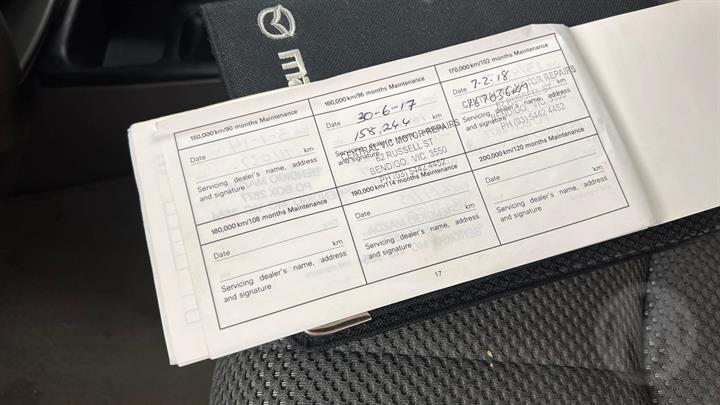 150,000 km/90 months Maintenance
Date km
Servicing dealer's name, address
and signature
160,000 km/96 months Maintenance
30-6-17
Date
158,244 km
Servicing
and signature
CENTRAL VIC MOTOR REPAIRS
62 RUSSELL ST
BENDIGO, VIC, 3550
PH (03) 5442 4452
170,000 km/102 months Maintenance
Date 7-2-18
km
Servicing dealer's name, address
and signature
MOTOR REPAIRS
RUSSELL ST
BENDIGO, VIC, 3550
PH (03) 5442 4452
180,000 km/108 months Maintenance
Date km
Servicing dealer's name, address
and signature
190,000 km/114 months Maintenance
Date km
Servicing dealer's name, address
and signature
200,000 km/120 months Maintenance
Date km
Servicing dealer's name, address
and signature
17